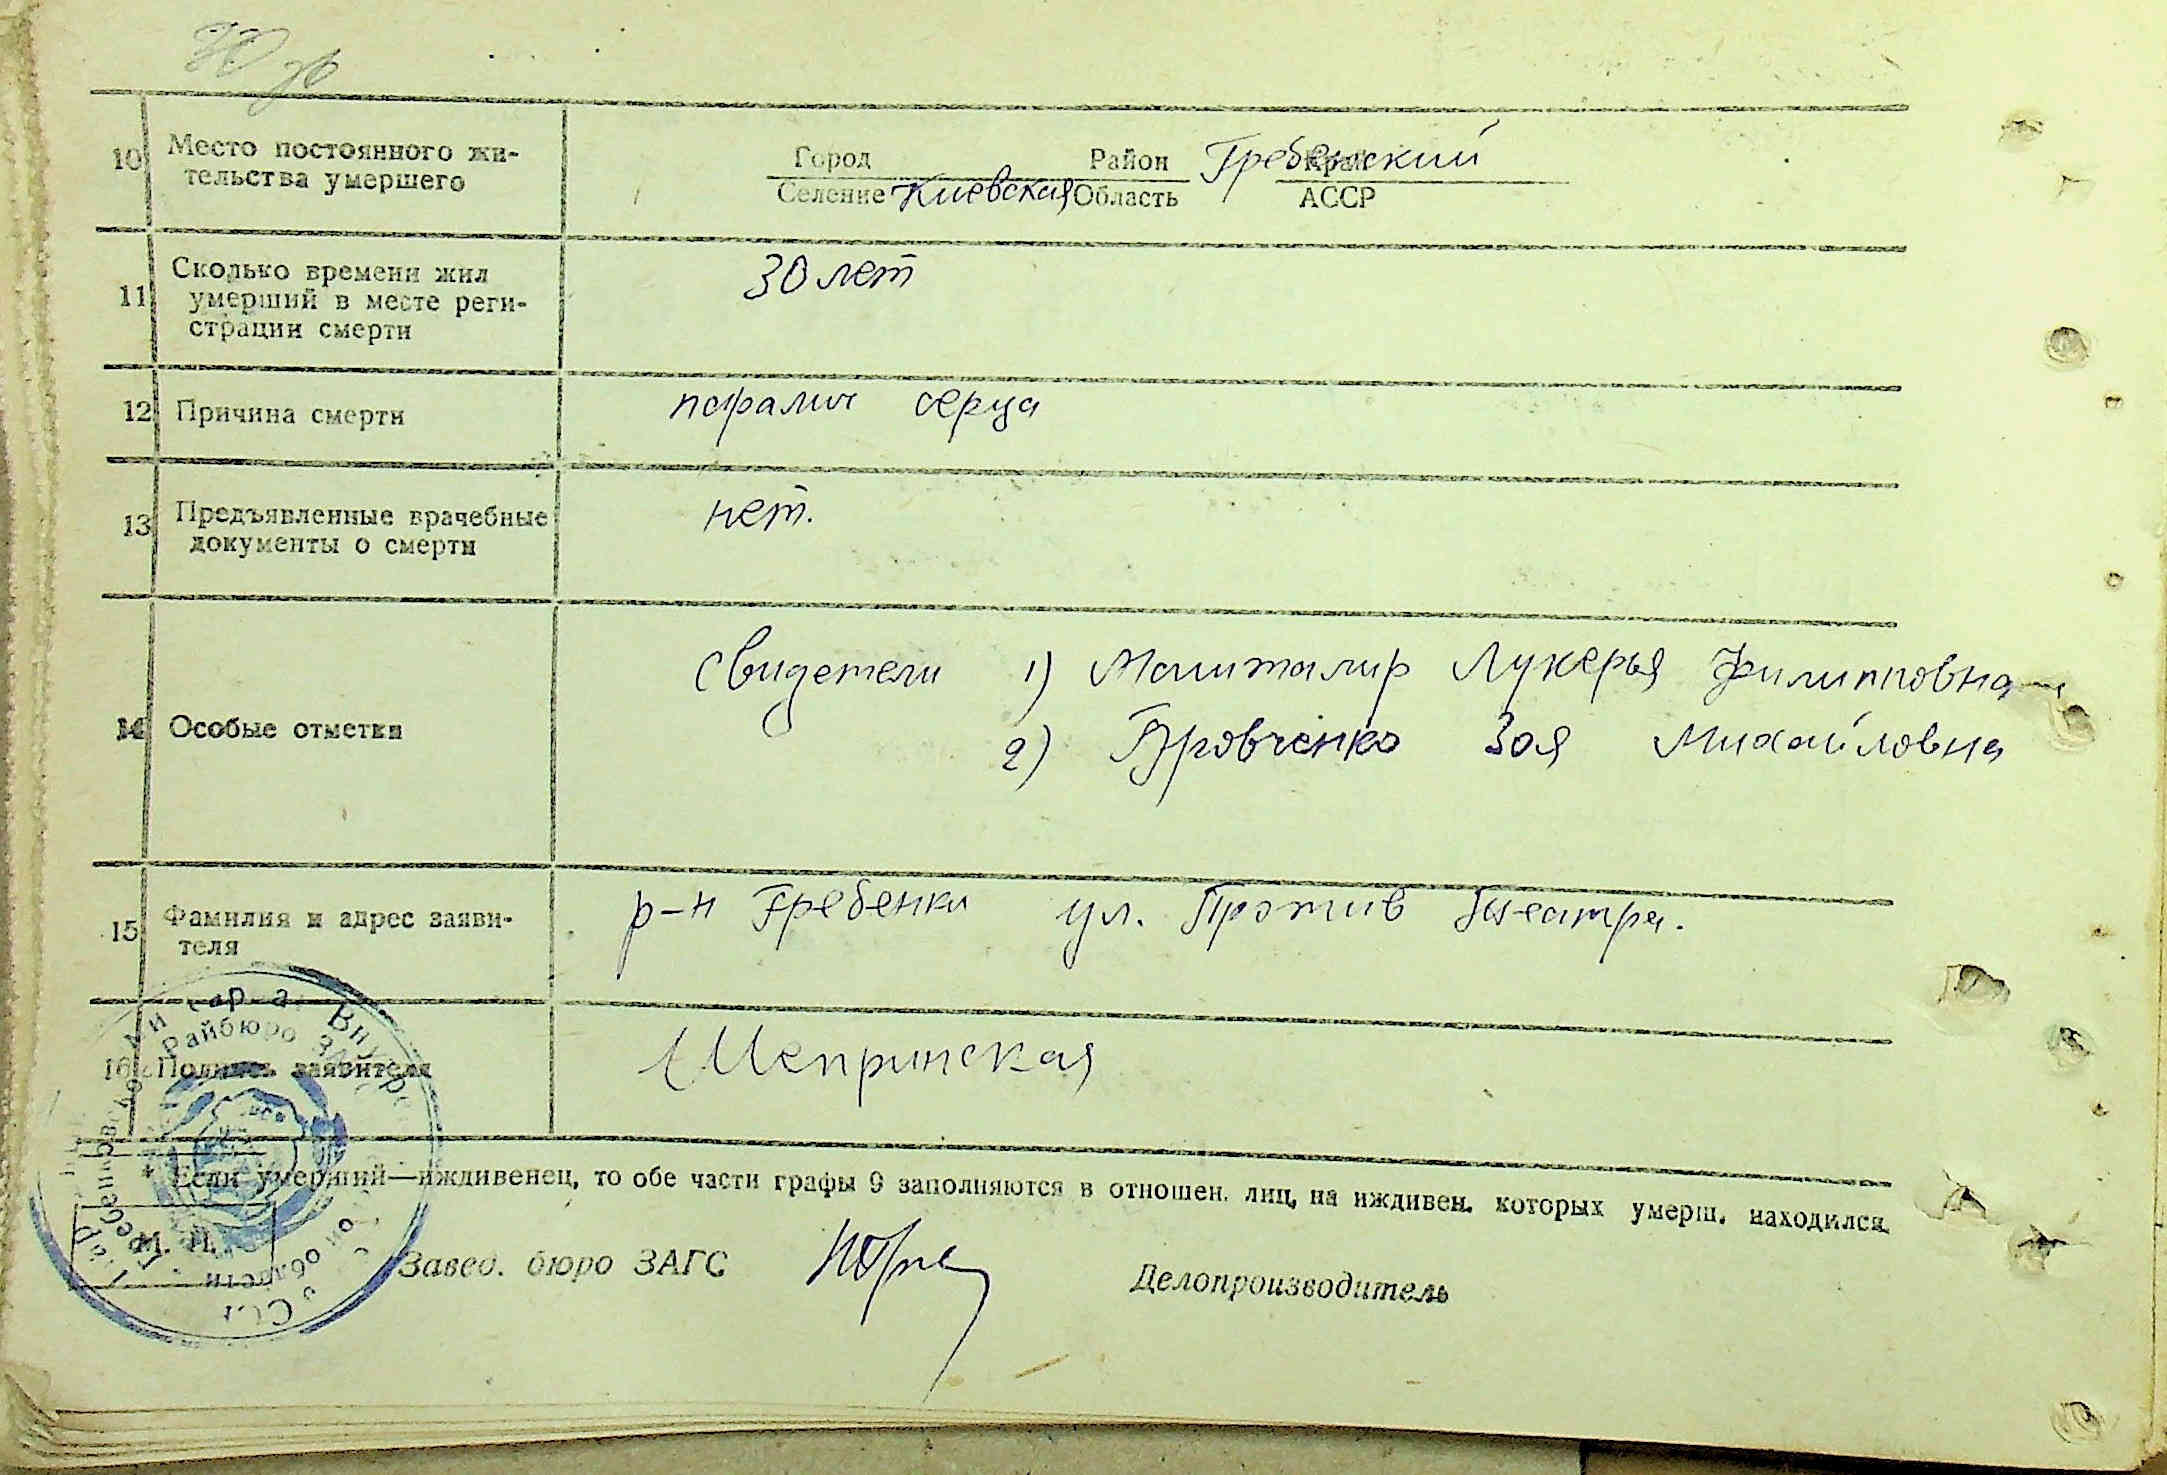 10 Место постоянного жи-
тельства умершего
Город Район Гребенский Край
Селение Киевская Область АССР
11 Сколько времени жил
умерший в месте реги-
страции смерти
30 лет
12 Причина смерти
паралич серца
13 Предъявленные врачебные
документы о смерти
нет.
14 Особые отметки
Свидетели 1) Машталир Лукерья Филипповна
2) Зоя Михайловна
15 Фамилия и адрес заяви-
теля
р-н Гребенки ул. Против Театра.
16 Подпись заявителя
* Если умерший—иждивенец, то обе части графы 9 заполняются в отношен. лиц, на иждивен. которых умерш. находился.
М. П.
Завед. бюро ЗАГС
Делопроизводитель
Райбюро
области